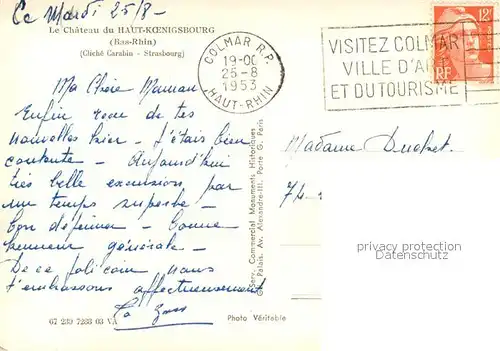 Ce Mardi 25/8 -
Le Château du HAUT-KŒNIGSBOURG
(Bas-Rhin)
(Cliché Carabin - Strasbourg)
COLMAR R.P.
19-00
25-8
1953
HAUT-RHIN
VISITEZ COLMAR
VILLE D'ART
ET DU TOURISME
12F
RF
Ma Chère Maman
Enfin reçu de tes
nouvelles hier - J'étais bien
contente - Aujourd'hui
très belle excursion par
un temps superbe -
bon déjeuner - bonne
humeur générale -
De ce joli coin nous
t'embrassons affectueusement
Madame
74
Serv. Commercial Monuments Historiques
Gd Palais. Av. Alexandre-III. Porte G. Paris
privacy protection
67 239 7233 03 VA
Photo Véritable